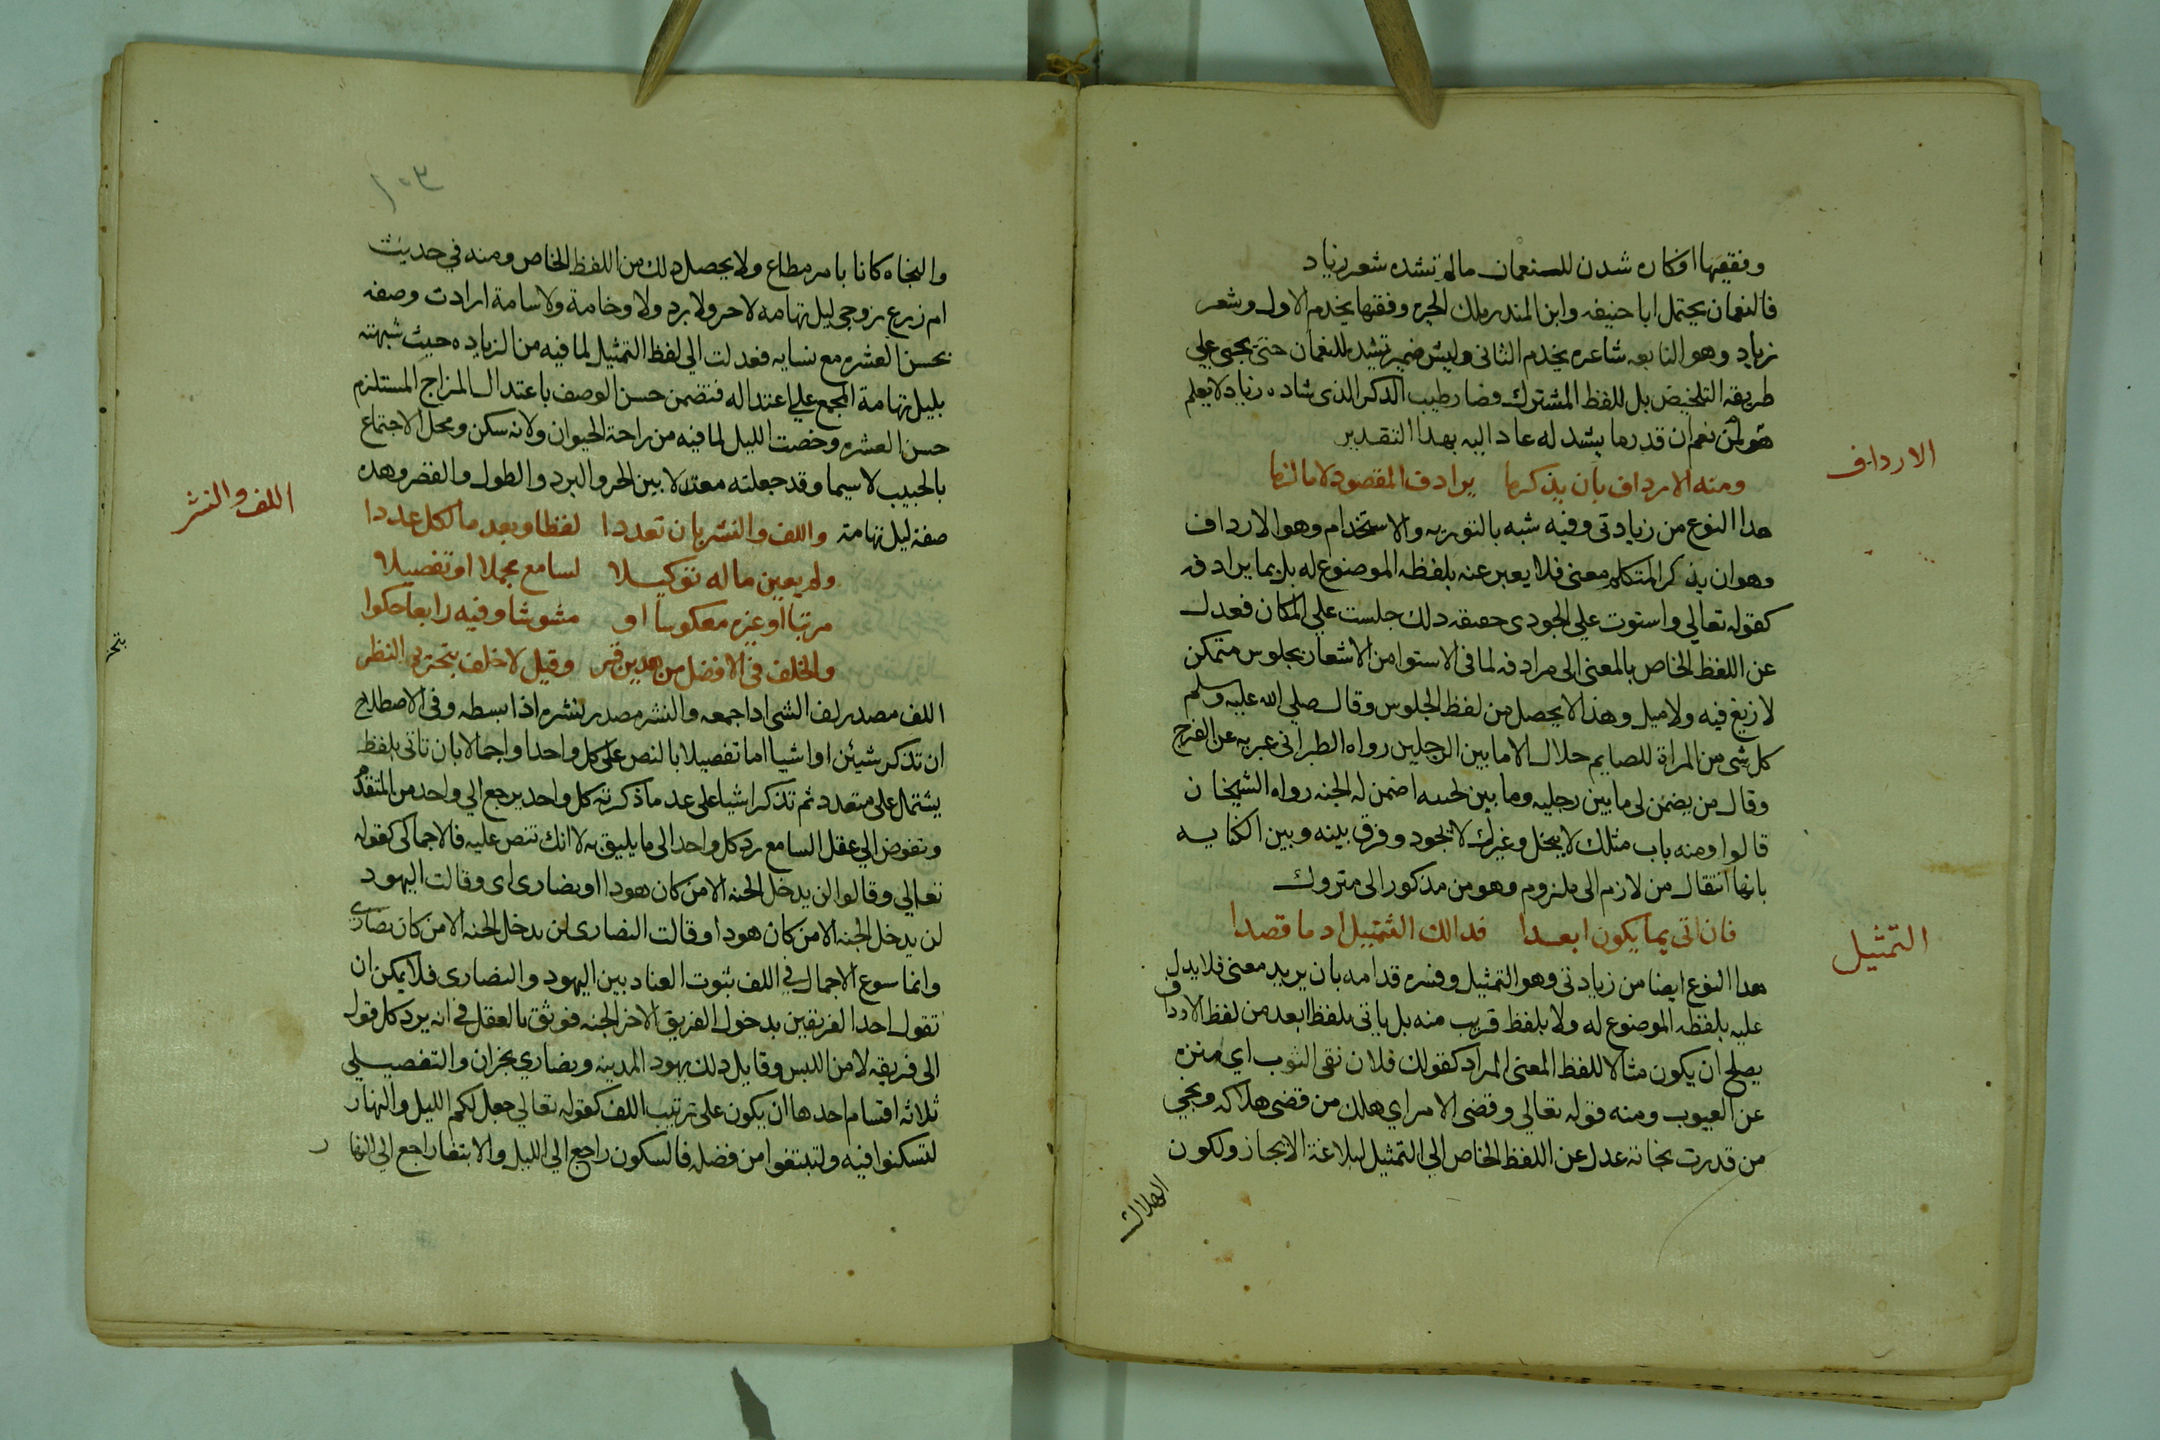 وفقيها افكاره شدن للنعمان مالم تشده شعر زياد
فالنعمان يحتمل ابا حنيفه وابن المنذر ملك الحيره وفقيها يخدم الاول وشعر
زياد وهو النابعه شاعره يخدم الثاني وليس ضمير تشده للنعمان حتى يجي علي
طريقه التلخيص بل للفظ المشترك فصار طيب الذكر الذي شاده زياد لا يعلم
هو لمن نعمان قدر ما يشد له عاد اليه بهذا التقدير
الارداف
ومنه الارداف بان يذكر ما يرادف المقصود لا ما لزما
هذا النوع من زيادتي وفيه شبه بالتوريه والاستخدام وهو الارداف
وهو ان يذكر المتكلم معنى فلا يعبر عنه بلفظه الموضوع له بل بما يرادفه
كقوله تعالي واستوت علي الجودى حقيقه ذلك جلست علي المكان فعدل
عن اللفظ الخاص بالمعنى الى مرادفه لما في الاستوا من الاشعار بجلوس متمكن
لا زيغ فيه ولا ميل وهذا لا يحصل من لفظ الجلوس وقال صلي الله عليه وسلم
كل شى من المراة للصايم حلال الا ما بين الرجلين رواه الطبراني عبر به عن الفرج
وقال من يضمن لى ما بين رجليه وما بين لحييه اضمن له الجنه رواه الشيخان
قالوا ومنه باب مثلك لا يبخل وغيرك لا يجود وفرق بينه وبين الكنايه
بانها انتقال من لازم الى ملزوم وهو من مذكور الى متروك
التمثيل
فان اتى بما يكون ابعدا فذلك التمثيل اد ما قصدا
هذا النوع ايضا من زيادتي وهو التمثيل وفسره قدامه بان يريد معنى فلا يدل
عليه بلفظه الموضوع له ولا بلفظ قريب منه بل ياتى بلفظ ابعد من لفظ الارداف
يصلح ان يكون مثالا للفظ المعنى المراد كقولك فلان نقى الثوب اي منزه
عن العيوب ومنه قوله تعالي وقضى الامر اي هلك من قضى هلاكه ونجي
من قدرت نجاته عدل عن اللفظ الخاص الي التمثيل لبلاغة الايجاز ولكون
الهلاك
والنجاه كانا بامر مطاع ولا يحصل ذلك من اللفظ الخاص ومنه في حديث
ام زرع زوجي ليل تهامه لا حر ولا برد ولا وخامة ولا سامة ارادت وصفه
بحسن العشره مع نسايه فعدلت الي لفظ التمثيل لما فيه من الزياده حيث شبهته
بليل تهامة المجمع علي اعتداله فتضمن حسن الوصف باعتدال المزاج المستلزم
حسن العشره وخصت الليل لما فيه من راحة الحيوان ولانه سكن ومحل الاجتماع
بالحبيب لا سيما وقد جعلته معتدلا بين الحر والبرد والطول والقصر وهذه
اللف والنشر
صفة ليل تهامة واللف والنشر بان تعددا لفظا وبعد ما لكل عددا
ولم يعين ماله توكيلا لسامع مجملا او تفصيلا
مرتبا او غيره معكوسا او مشوشا وفيه رابعا حكوا
والخلف في الافضل من هذين قر وقيل لا خلف بتحرير النظر
اللف مصدر لف الشى اذا جمعه والنشر مصدر نشره اذا بسطه وفي الاصطلاح
ان تذكر شيئن او اشيا اما تفصيلا بالنص على كل واحد او اجمالا بان تاتي بلفظ
يشتمل على متعدد ثم تذكر اشيا على عد ما ذكرته كل واحد يرجع الي واحد من المتقدم
وتفوض الي عقل السامع رد كل واحد الى ما يليق به لا انك تنص عليه فالاجمالى كقوله
تعالي وقالوا لن يدخل الجنه الا من كان هودا او نصارى اى وقالت اليهود
لن يدخل الجنه الا من كان هودا وقالت النصارى لن يدخل الجنه الا من كان نصارى
وانما سوغ الاجمال في اللف ثبوت العناد بين اليهود والنصارى فلا يمكن ان
تقول احد الفريقين بدخول الفريق الاخر الجنه فوثق بالعقل في انه يرد كل قول
الى فريقه لامن اللبس وقايل ذلك يهود المدينه ونصاري نجران والتفصيلي
ثلاثه اقسام احدها ان يكون على ترتيب اللف كقوله تعالي جعل لكم الليل والنهار
لتسكنوا فيه ولتبتغوا من فضله فالسكون راجع الي الليل والابتغا راجع الي النهار